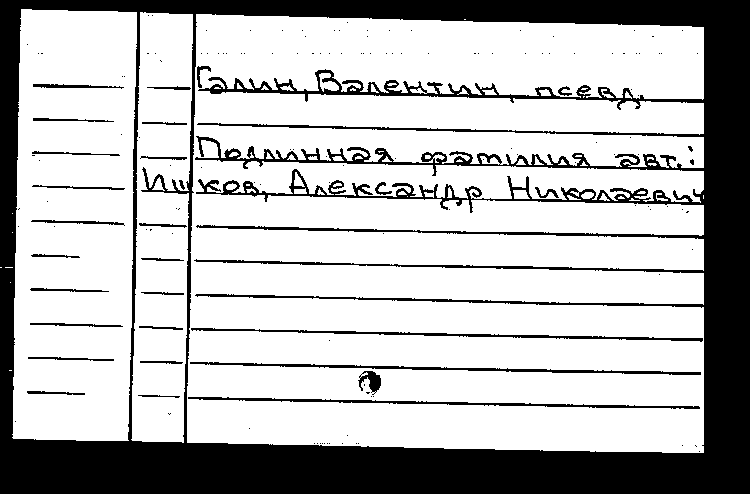 Галин, Валентин, псевд.
Подлинная фамилия авт.:
Ишков, Александр Николаевич